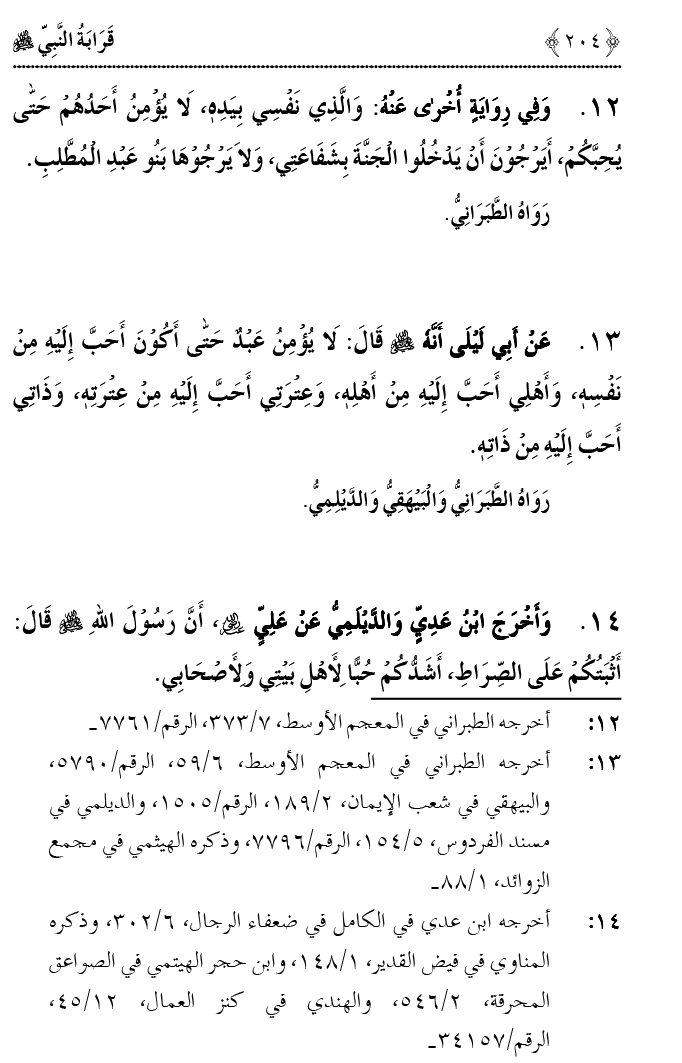 ﴿٢٠٤﴾ قَرَابَةُ النَّبِيِّ ﷺ
١٢. وَفِي رِوَايَةٍ أُخْرٰى عَنْهُ: وَالَّذِي نَفْسِي بِيَدِهٖ، لَا يُؤْمِنُ أَحَدُهُمْ حَتّٰى
يُحِبَّكُمْ، أَيَرْجُوْنَ أَنْ يَدْخُلُوا الْجَنَّةَ بِشَفَاعَتِي، وَلَا يَرْجُوْهَا بَنُو عَبْدِ الْمُطَّلِبِ.
رَوَاهُ الطَّبَرَانِيُّ.
١٣. عَنْ أَبِي لَيْلَى أَنَّهٗ ﷺ قَالَ: لَا يُؤْمِنُ عَبْدٌ حَتّٰى أَكُوْنَ أَحَبَّ إِلَيْهِ مِنْ
نَفْسِهٖ، وَأَهْلِي أَحَبَّ إِلَيْهِ مِنْ أَهْلِهٖ، وَعِتْرَتِي أَحَبَّ إِلَيْهِ مِنْ عِتْرَتِهٖ، وَذَاتِي
أَحَبَّ إِلَيْهِ مِنْ ذَاتِهٖ.
رَوَاهُ الطَّبَرَانِيُّ وَالْبَيْهَقِيُّ وَالدَّيْلَمِيُّ.
١٤. وَأَخْرَجَ ابْنُ عَدِيٍّ وَالدَّيْلَمِيُّ عَنْ عَلِيٍّ ، أَنَّ رَسُوْلَ اللهِ ﷺ قَالَ:
أَثْبَتُكُمْ عَلَى الصِّرَاطِ، أَشَدُّكُمْ حُبًّا لِأَهْلِ بَيْتِي وَلِأَصْحَابِي.
١٢: أخرجه الطبراني في المعجم الأوسط، ٧/٣٧٣، الرقم/٧٧٦١ـ
١٣: أخرجه الطبراني في المعجم الأوسط، ٦/٥٩، الرقم/٥٧٩٠،
والبيهقي في شعب الإيمان، ٢/١٨٩، الرقم/١٥٠٥، والديلمي في
مسند الفردوس، ٥/١٥٤، الرقم/٧٧٩٦، وذكره الهيثمي في مجمع
الزوائد، ١/٨٨ـ
١٤: أخرجه ابن عدي في الكامل في ضعفاء الرجال، ٦/٣٠٢، وذكره
المناوي في فيض القدير، ١/١٤٨، وابن حجر الهيتمي في الصواعق
المحرقة، ٢/٥٤٦، والهندي في كنز العمال، ١٢/٤٥،
الرقم/٣٤١٥٧ـ